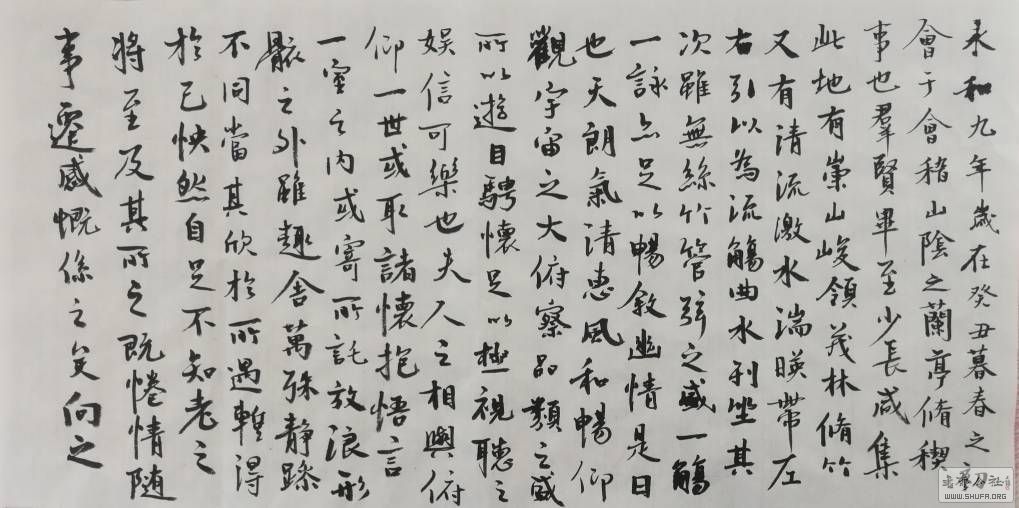 永和九年歲在癸丑暮春之初
會于會稽山陰之蘭亭脩稧
事也羣賢畢至少長咸集
此地有崇山峻領茂林脩竹
又有清流激水湍暎帶左
右引以為流觴曲水列坐其
次雖無絲竹管弦之盛一觴
一詠亦足以暢敘幽情是日
也天朗氣清惠風和暢仰
觀宇宙之大俯察品類之盛
所以遊目騁懷足以極視聽之
娛信可樂也夫人之相與俯
仰一世或取諸懷抱悟言
一室之內或寄所託放浪形
骸之外雖趣舍萬殊靜躁
不同當其欣於所遇暫得
於己怏然自足不知老之
將至及其所之既惓情隨
事遷感慨係之矣向之
WWW.SHUFA.ORG